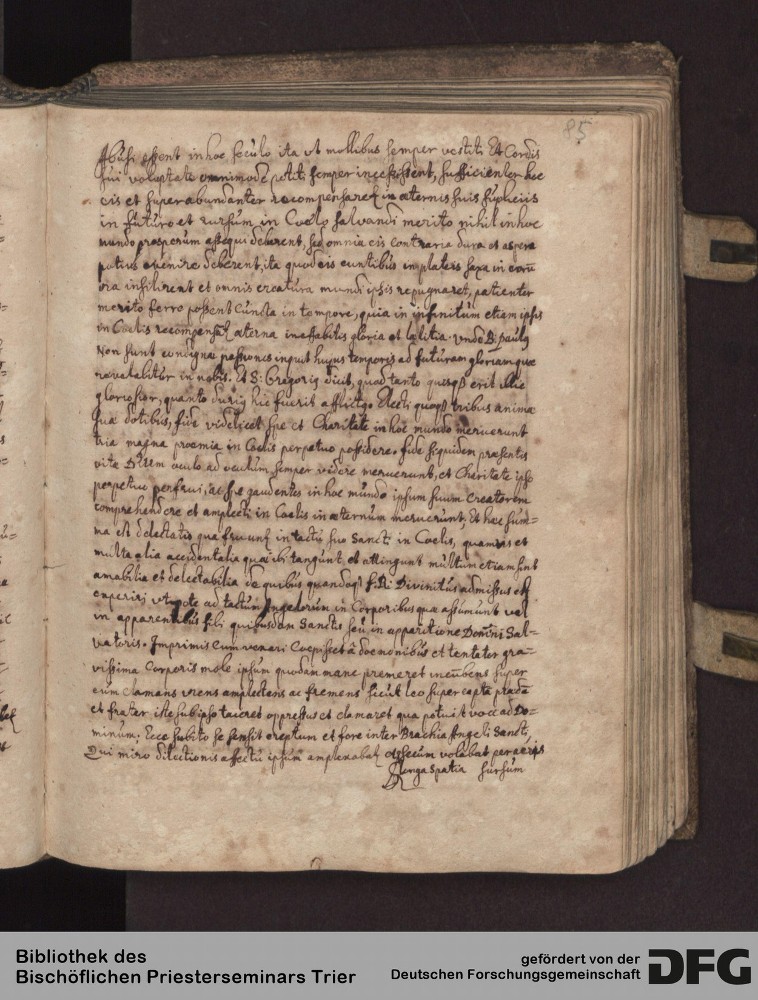 85
essent in hoc seculo ita ut mollibus semper vestiti Et Cordis
sui voluptate omnimode potiti semper incessissent, sufficienter hoc
eis et superabundanter recompensaret in æternis suis supliciis
in futuro et rursum in Coelo salvandi merito nihil in hoc
mundo prosperum assequi deberent, sed omnia eis contraria dura et aspera
potius evenire deberent, ita quod eis euntibus in plateis saxa in
ora insilirent et omnis creatura mundi ipsis repugnaret, patienter
merito ferre possent Cuncta in tempore, quia in infinitum etiam ipsis
in Coelis æterna ineffabilis gloria et Lætitia. unde B. Paulg
Non sunt condignæ passiones hujus temporis ad futuram gloriam quæ
revelabitur in nobis. Et S: Gregorig dicit, quod tanto erit illic
gloriosior, quanto durig hic fuerit Electi tribus animæ
suæ dotibus, fide videlicet spe et Charitate in hoc mundo meruerunt
tria magna præmia in Coelis perpetuo possidere. fide siquidem præsentis
vitæ oculo ad oculum semper videre meruerunt, et Charitate ipso
perpetuo perfrui, ac spe gaudentes in hoc mundo ipsum suum Creatorem
comprehendere et amplecti in Coelis in æternum meruerunt, Et hæc sum=
ma est delectatio qua in tactu suo Sancti in Coelis, quamvis et
multa alia accidentalia quæ ibi tangunt, et attingunt multum etiam sint
amabilia et delectabilia de quibus Divinitus admissus est
experiri utpote ad tactum Angelorum in Corporibus quæ assumunt vel
in sibi quibusdam Sanctis seu in apparitione Domini Sal=
vatoris. Imprimis cum venari Coepisset à doemonibus et tentater gra=
vissima Corporis mole ipsum quodam mane premeret incubens super
eum clamans amplectens ac fremens sicut leo super capta præda
et frater iste sub ipso taceret oppressus et clamaret qua potuit voce ad Do=
minum, Ecce subito se sensit ereptum et fore inter Brachia Angeli Sancti,
Qui miro dilectionis affectu ipsum et secum volabat per aëris
longa spatia sursum
Bibliothek des
Bischöflichen Priesterseminars Trier
gefördert von der
Deutschen Forschungsgemeinschaft
DFG